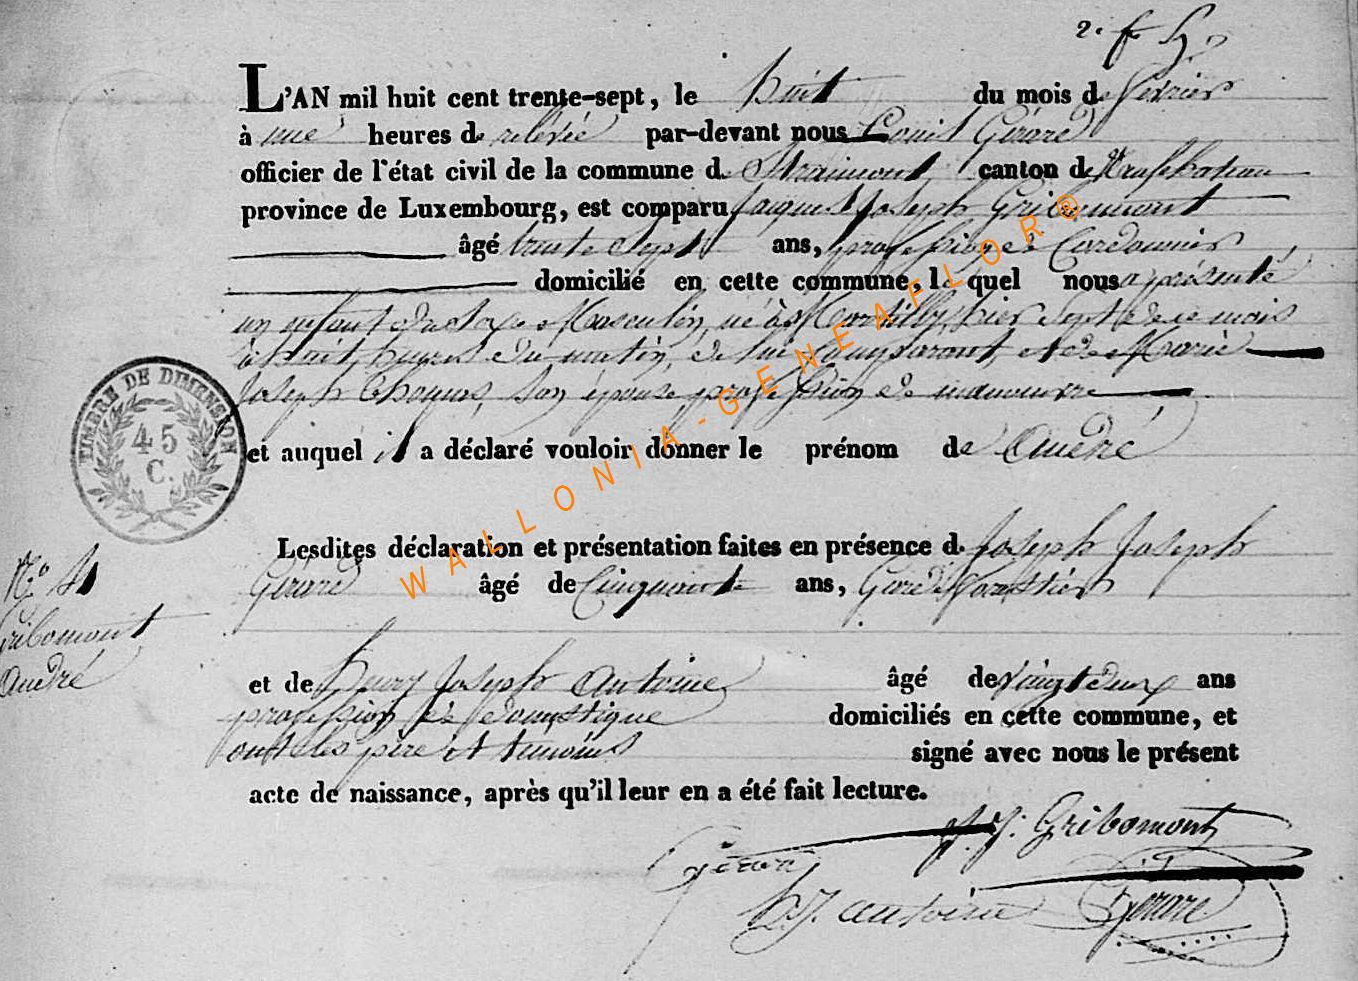 2. f
L'AN mil huit cent trente-sept, le huit du mois de février
à une heures de relevée par-devant nous Louis Gérard
officier de l'état civil de la commune de Straimont, canton de Neufchateau
province de Luxembourg, est comparu Jacques Joseph Gribomont
âgé trente Sept ans, profession de Cordonnier
domicilié en cette commune, lequel nous a présenté
un enfant du sexe Masculin, né à Martilly, hier Sept de ce mois
à huit heures du matin, de lui comparant, et de Marie
Joseph Thomas, son épouse, profession de manoeuvre
et auquel il a déclaré vouloir donner le prénom de André
Lesdites déclaration et présentation faites en présence de Joseph Joseph
Gérard âgé de Cinquante ans, Garde Forestier
et de henry Joseph Antoine âgé de vingt deux ans
profession de domestique domiciliés en cette commune, et
ont les père et témoins signé avec nous le présent
acte de naissance, après qu'il leur en a été fait lecture.
J. J. Gribomont
Gérard
h. J. antoine Gerard
TIMBRE DE DIMENSION
45
C.
N.o
Gribomont
André
WALLONIA-GENEAFLOR®